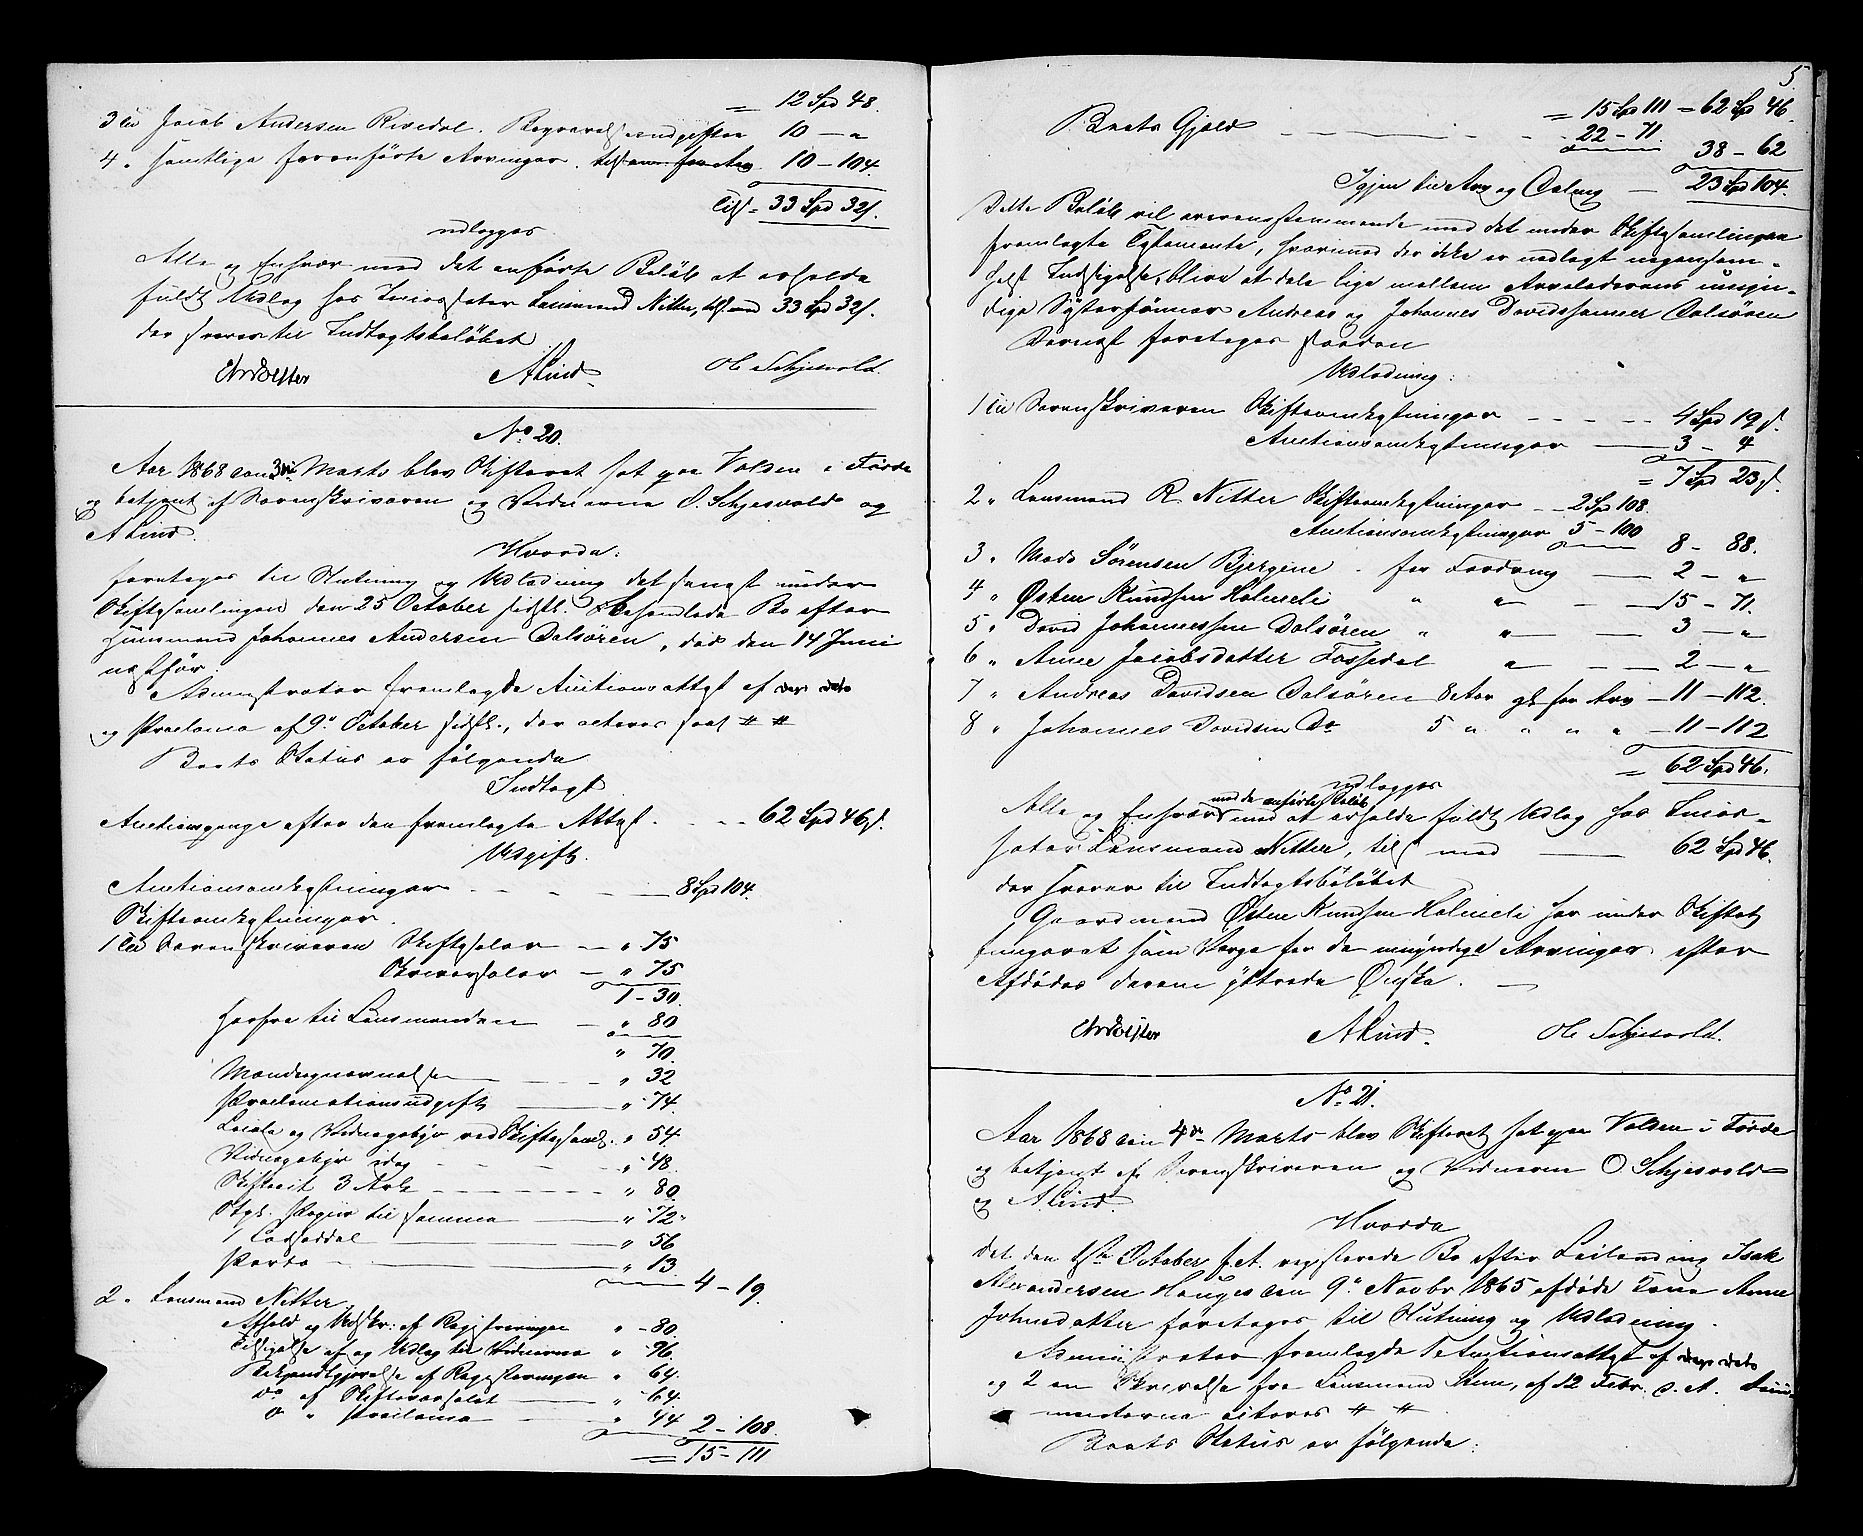 = 12 Spd 48.
3 til Jacob Andersen Rivedal. Begravelsesudgifter 10 — "
4 " samtlige foranførte Arvinger. tilsammen for Arv 10 - 104.
Tils. = 33 Spd 32 s.
udlægges
Alle og Enhver med det anførte Beløb at erholde
fuldt Udlag hos Incassator Lensmand Nitter, tils. med 33 Spd 32 s.
der svarer til Indtægtsbeløbet
A Lind. Ole Schjesvold.
No 20.
Aar 1868 den 3die Marts blev Skifteret sat paa Valsen i Førde
og betjent af Sorenskriveren og Vidnerne O. Schjesvold og
A Lind.
Hvorda:
foretages til Slutning og Udlodning det sengst under
Skiftesamlingen den 25 October sidstl. behandlede Bo efter
Huusmand Johannes Andersen Dalsøren, død den 14 Juni
næstfør.
Administrator fremlagde Auctionsattest af
og Proclama af 9de October sidstl., der acteres saal. # #
Boets Status er følgende
Indtægt
Auctionspenge efter den fremlagte Attest. - - 62 Spd 46 s.
Udgift.
Auctionsomkostninger - - - - 8 Spd 104.
Skifteomkostninger.
1 til Sorenskriveren Skiftesalær — " 75
Skriversalær — " 75
1 - 30.
herfra til Lensmanden — " 80
" 70.
Mandsopnævnelse — " 32
Proclamationsudgift — " 74.
Locale og Vidnegebyr ved Skiftesaml. " 54.
Vidnegebyr idag — " 48.
Skifteact 3 Ark — " 80.
Stpl. Papiir til samme — " 72 "
1 Lodseddel — " 56
Porto — " 13.
4 - 19.
2 " Lensmand Nitter
Afhold og Udskr. af Registreringen " - 80.
Tilsigelse af og Udlæg til Vidnerne " - 96
Bekjendtgjørelse af Registreringen " 64.
do af Skifteværsalet — " - 64.
do " Proclama — " 44
2 - 108.
= 15 - 111
5
= 15 Spd 111 = 62 Spd 46.
Boets Gjæld - - - 22 - 71.
38 - 62
Igjen til Arv og Deling — 23 Spd 104.
Dette Beløb vil overensstemmende med det under Skiftesamlingen
fremlagte Testamente, hvorimod der ikke er nedlagt nogensom-
helst Indsigelse, blive at dele lige mellem Arveladerens umyn-
dige Søstersønner Andreas og Johannes Davidssønner Dalsøren
Dernæst foretages saadan
Udlodning:
1 til Sorenskriveren Skifteomkostninger - - - - 4 Spd 19 s.
Auctionsomkostninger — 3 - 4
= 7 Spd 23 s.
2 " Lensmand R. Nitter Skifteomkostninger - - 2 Spd 108.
Auctionsomkostninger 5 - 100
8 - 88.
3 " Mads Sørensen Bjergene - for Fordring — 2 - "
4 " Østen Knudsen Holmeli " " - — 15 - 71.
5 " David Johannessen Dalsøren " " — — 3 — "
6 " Anne Jacobsdatter Fossedal " — — 2 — "
7 " Andreas Davidsen Dalsøren 8 Aar gl. for Arv — 11 - 112.
8 " Johannes Davidsen Do 5 " " " " — 11 - 112
= 62 Spd 46.
udlægges
Alle og Enhver med de anførte Beløb med at erholde fuldt Udlag hos Incas-
sator Lensmand Nitter, tils. med — 62 Spd 46.
der svarer til Indtægtsbeløbet
Gaardmand Østen Knudsen Holmeli har under Skiftet
fungeret som Værge for de umyndige Arvinger efter
Afdødes derom yttrede Ønske. —
A Lind. Ole Schjesvold.
No 21.
Aar 1868 den 4de Marts blev Skifteret sat paa Valsen i Førde
og betjent af Sorenskriveren og Vidnerne O Schjesvold
og A Lind.
Hvorda
det den October f. A. registrerede Bo efter Leilænding Isak
Alexandersen Hauges den 9de Novbr 1865 afdøde Kone Anne
Johnsdatter foretages til Slutning og Udlodning.
Administrator fremlagde 1 Auctionsattest af
og 2 en Skrivelse fra Lensmand af 12 Febr. d. A. Docu-
menterne acteres # #.
Boets Status er følgende: